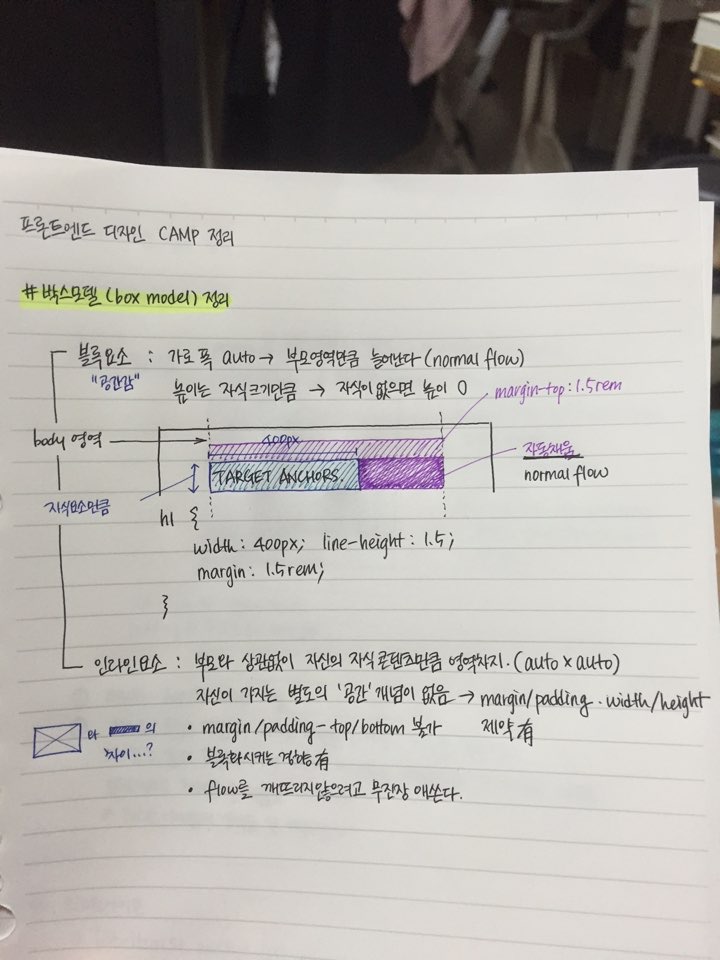 프론트엔드 디자인 CAMP 정리
# 박스모델 (box model) 정리
블록요소 : 가로 폭 auto → 부모영역만큼 늘어난다 (normal flow)
"공간감" 높이는 자식크기만큼 → 자식이 없으면 높이 0
margin-top : 1.5rem
body 영역 →
400px
TARGET ANCHORS.
자동채움
normal flow
자식요소만큼
h1 {
width : 400px; line-height : 1.5;
margin : 1.5rem;
}
인라인요소 : 부모와 상관없이 자신의 자식콘텐츠만큼 영역차지. (auto x auto)
자신이 가지는 별도의 '공간' 개념이 없음 → margin/padding · width/height
제약有
와 의
차이...?
• margin/padding - top/bottom 불가
• 블록화시키는 경향有
• flow를 깨뜨리지않으려고 무진장 애쓴다.